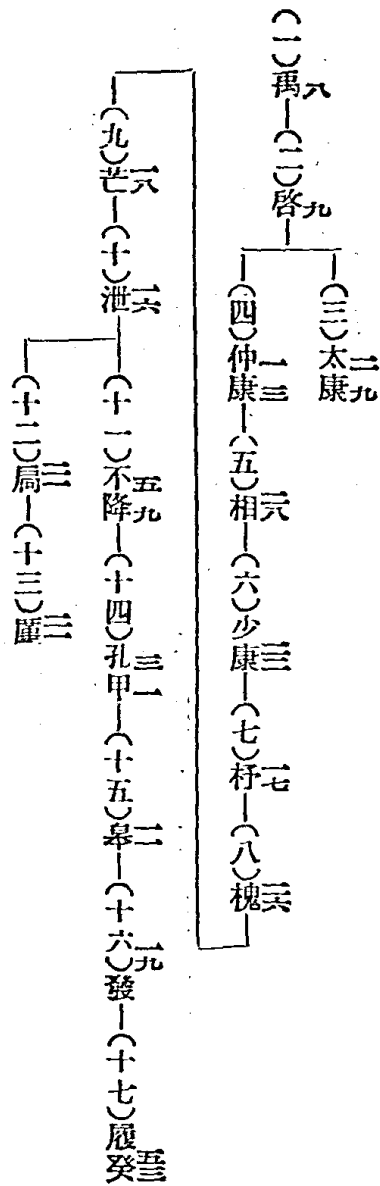 (一)禹八—(二)啓九
(三)太康二九
(四)仲康一三—(五)相二八—(六)少康二二—(七)杼一七—(八)槐二六
(九)芒一八—(十)泄一六
(十一)不降五九—(十四)孔甲三一—(十五)皋一一—(十六)發一九—(十七)履癸五三
(十二)扃二一—(十三)廑二一